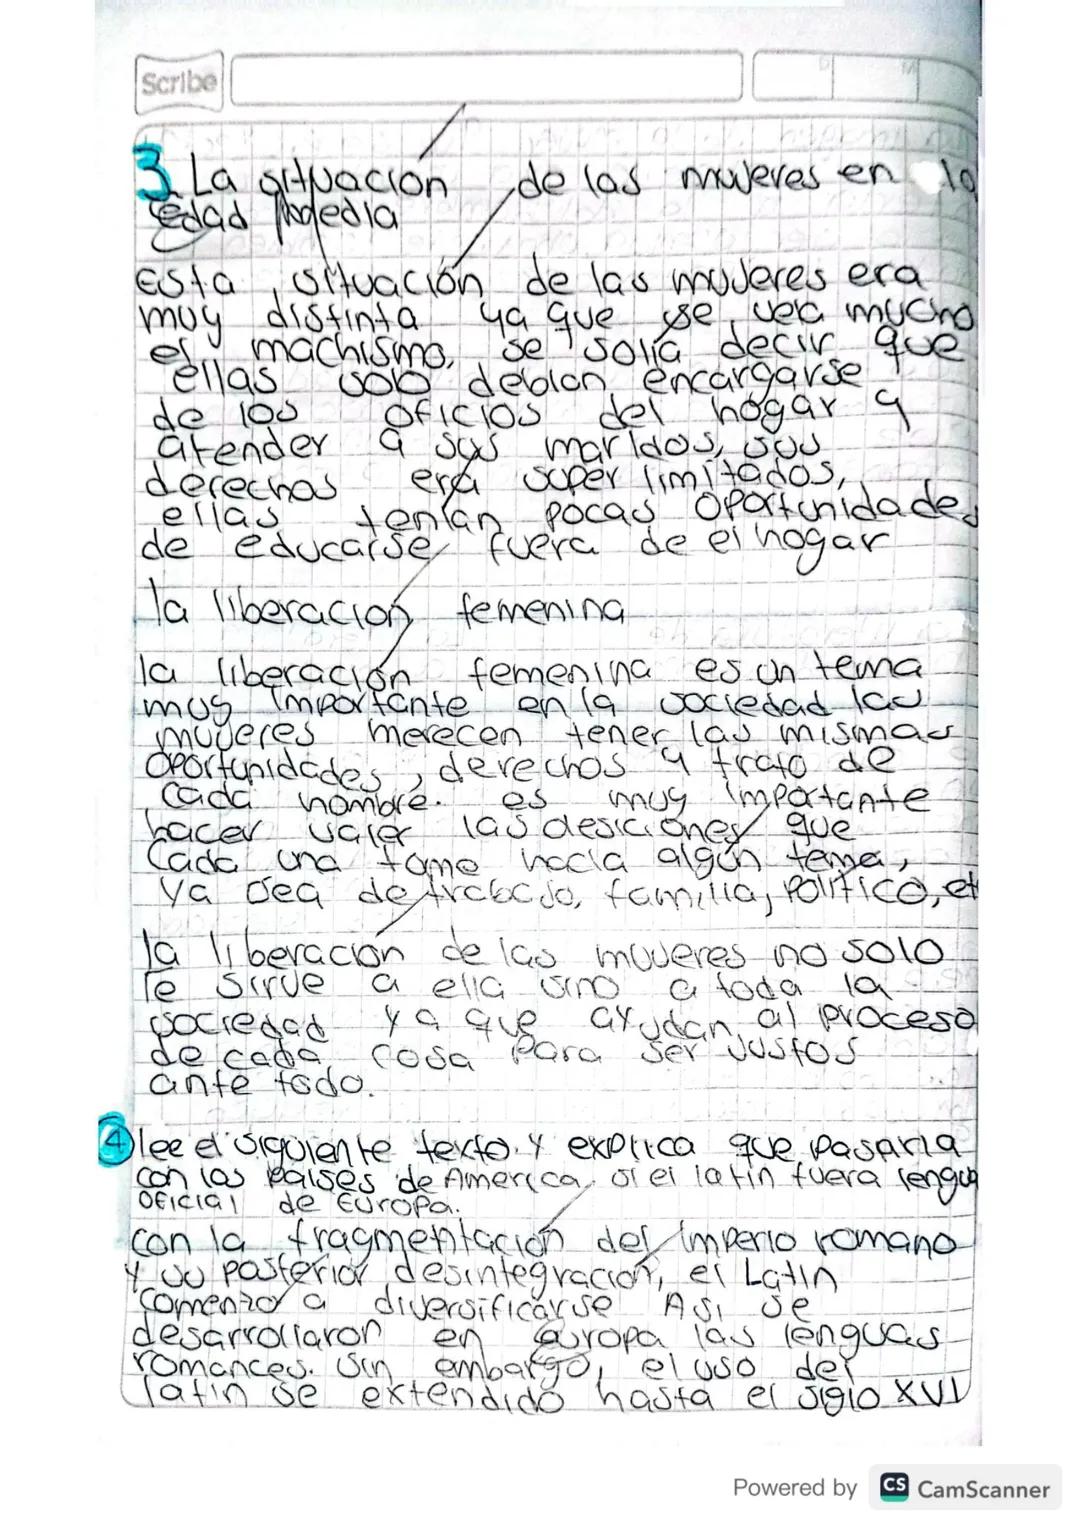 Scribe
3. La situación de las mujeres en la
edad media
Esta situación de las mujeres era
muy distinta ya que se veia mucho
el machismo, se solía decir que
ellas solo debian encargarse
de los oficios del hogar y
atender a sus maridos, sus
derechos era super limitados,
ellas tenían pocas oportunidades
de educarse fuera de el hogar
la liberacion femenina
la liberación femenina es un tema
muy importante en la sociedad las
mujeres merecen tener las mismas
oportunidades, derechos y trato de
cada hombre. es muy importante
hacer valer las desiciones que
Cada una tome hacia algún tema,
ya sea de trabajo, familia, político, et
la liberación de las mujeres no solo
le sirve a ella sino a toda la
sociedad ya que ayudan al proceso
de cada cosa para ser justos
ante todo.
4 lee el siguiente texto y explica que pasaria
con las paises de America, si el latin fuera lengua
oficial de Europa.
con la fragmentación del imperio romano
y su posterior desintegración, el Latin
comenzo a diversificarse Asi se
desarrollaron en europa las lenguas
romances. Sin embargo, el uso del
latin se extendido hasta el siglo XVI
Powered by CS CamScanner